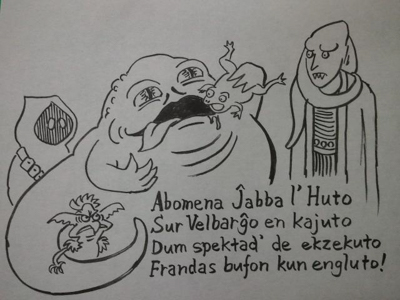 Abomena Ĵabba l' Huto
Sur Velbarĝo en kajuto
Dum spektad' de ekzekuto
Frandas bufon kun engluto!